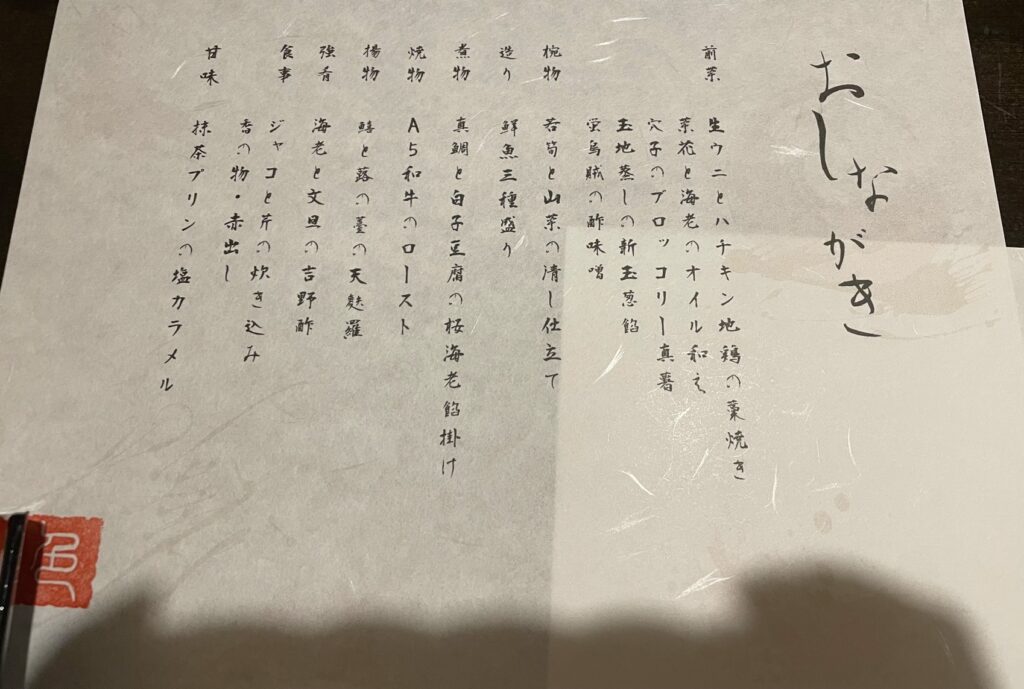 おしながき
前菜
生ウニとハチキン地鶏の藁焼き
菜花と海老のオイル和え
穴子のブロッコリー真薯
玉地蒸しの新玉葱餡
蛍烏賊の酢味噌
椀物
若筍と山菜の清し仕立て
造り
鮮魚三種盛り
煮物
真鯛と白子豆腐の桜海老餡掛け
焼物
A5和牛のロースト
揚物
鱚と蕗の薹の天麩羅
強肴
海老と文旦の吉野酢
食事
ジャコと芹の炊き込み
香の物・赤出し
甘味
抹茶プリンの塩カラメル